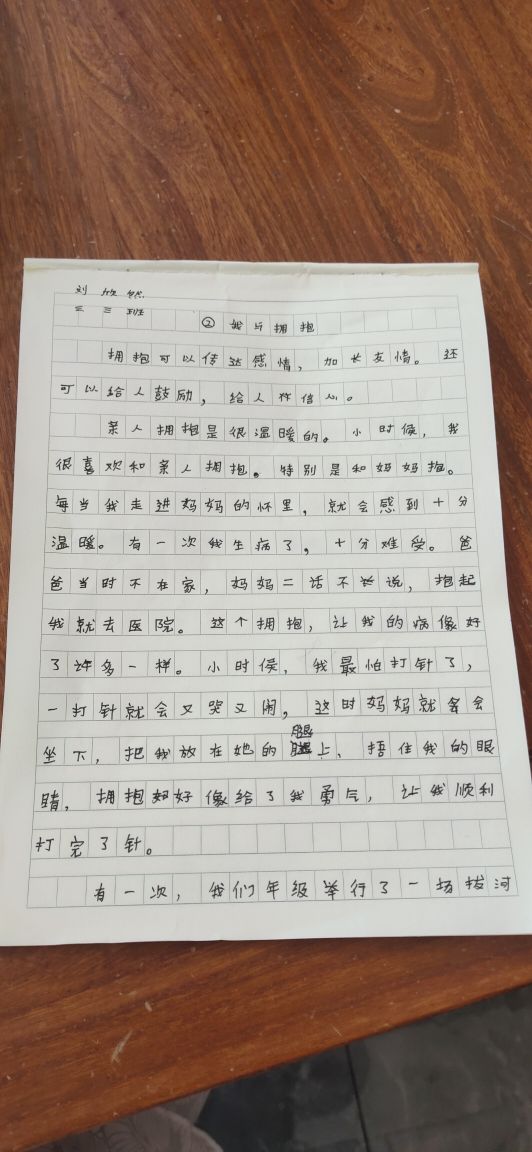 刘欣然
三三班
② 我与拥抱
拥抱可以传达感情，加长友情。还
可以给人鼓励，给人信心。
亲人拥抱是很温暖的。小时候，我
很喜欢和亲人拥抱。特别是和妈妈抱。
每当我走进妈妈的怀里，就会感到十分
温暖。有一次我生病了，十分难受。爸
爸当时不在家，妈妈二话不说，抱起
我就去医院。这个拥抱，让我的病像好
了许多一样。小时候，我最怕打针了，
一打针就会又哭又闹，这时妈妈就会
坐下，把我放在她的腿上，捂住我的眼
睛，拥抱好像给了我勇气，让我顺利
打完了针。
有一次，我们年级举行了一场拔河